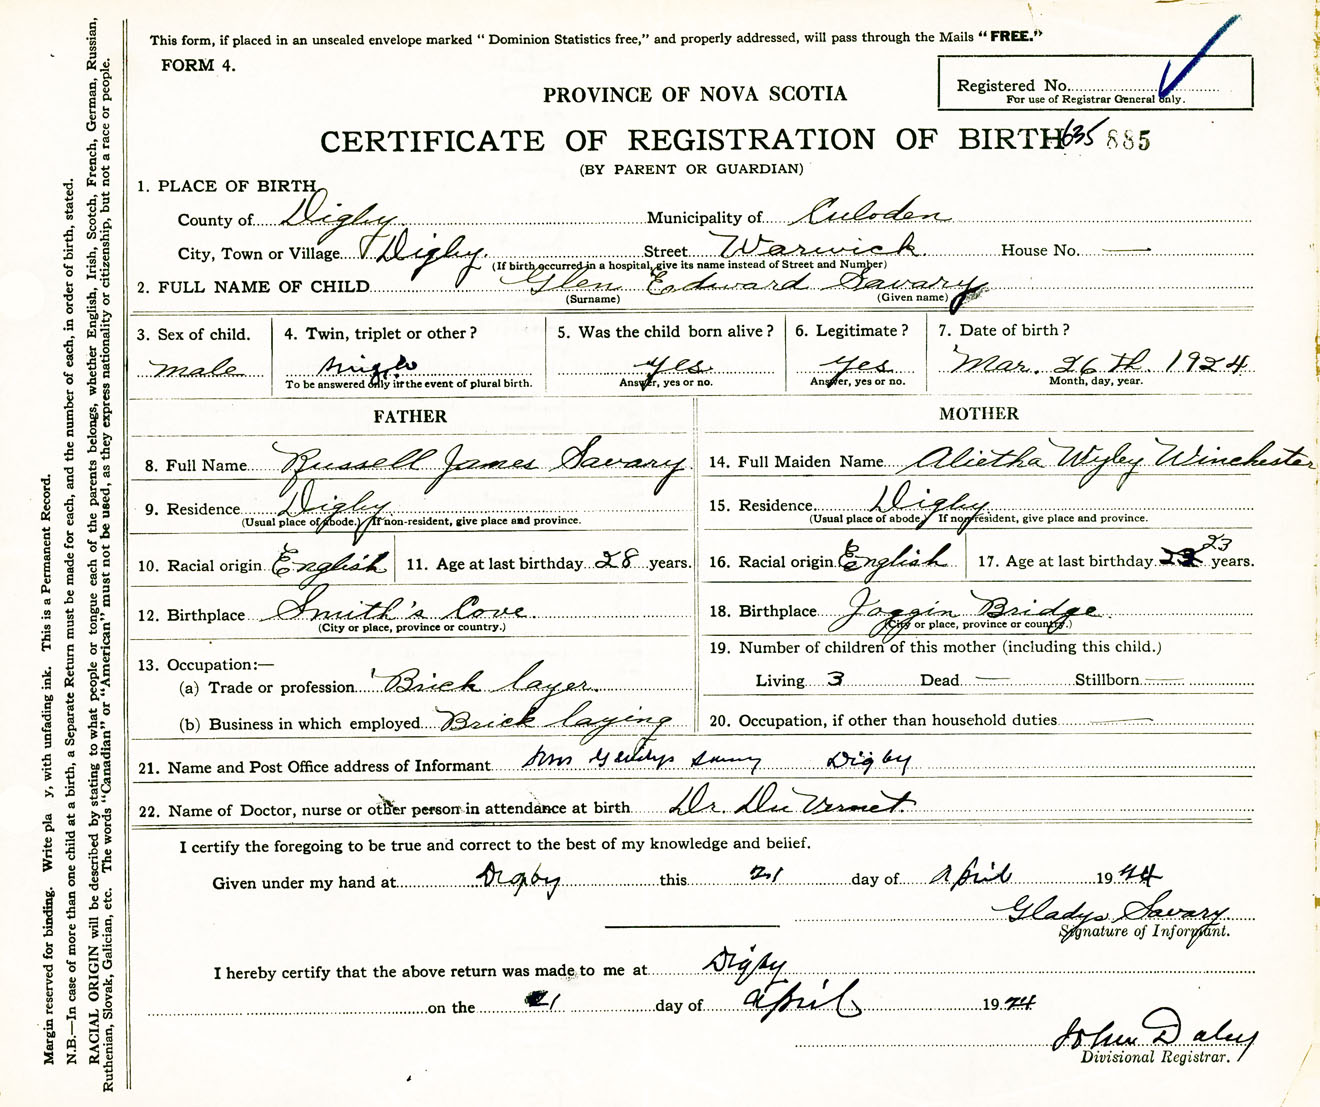 This form, if placed in an unsealed envelope marked " Dominion Statistics free," and properly addressed, will pass through the Mails " FREE."
FORM 4.
Registered No.
For use of Registrar General only.
PROVINCE OF NOVA SCOTIA
CERTIFICATE OF REGISTRATION OF BIRTH 635 885
(BY PARENT OR GUARDIAN)
1. PLACE OF BIRTH
County of Digby Municipality of Culoden
City, Town or Village Digby. Street Warwick House No. —
(If birth occurred in a hospital, give its name instead of Street and Number)
2. FULL NAME OF CHILD Glen Edward Savary
(Surname) (Given name)
3. Sex of child. 4. Twin, triplet or other ? 5. Was the child born alive ? 6. Legitimate ? 7. Date of birth ?
male single yes yes Mar. 26th. 1924
To be answered only in the event of plural birth. Answer, yes or no. Answer, yes or no. Month, day, year.
FATHER MOTHER
8. Full Name Russell James Savary 14. Full Maiden Name Alietha Wyley Winchester
9. Residence Digby 15. Residence Digby
(Usual place of abode.) If non-resident, give place and province. (Usual place of abode, If non-resident, give place and province.
10. Racial origin English 11. Age at last birthday 28 years. 16. Racial origin English 17. Age at last birthday 23 years.
12. Birthplace Smith's Cove. 18. Birthplace Joggin Bridge
(City or place, province or country.) (City or place, province or country.)
13. Occupation:— 19. Number of children of this mother (including this child.)
(a) Trade or profession Brick layer. Living 3 Dead — Stillborn —
(b) Business in which employed Brick laying 20. Occupation, if other than household duties —
21. Name and Post Office address of Informant Mrs Gladys Savary Digby
22. Name of Doctor, nurse or other person in attendance at birth Dr. Du Vernet.
I certify the foregoing to be true and correct to the best of my knowledge and belief.
Given under my hand at Digby this 21 day of April 1924
Gladys Savary
Signature of Informant.
I hereby certify that the above return was made to me at Digby
on the 21 day of April 1924
John Daley
Divisional Registrar.
Margin reserved for binding. Write pla y, with unfading ink. This is a Permanent Record.
N.B.—In case of more than one child at a birth, a Separate Return must be made for each, and the number of each, in order of birth, stated.
RACIAL ORIGIN will be described by stating to what people or tongue each of the parents belongs, whether English, Irish, Scotch, French, German, Russian,
Ruthenian, Slovak, Galician, etc. The words "Canadian" or "American" must not be used, as they express nationality or citizenship, but not a race or people.